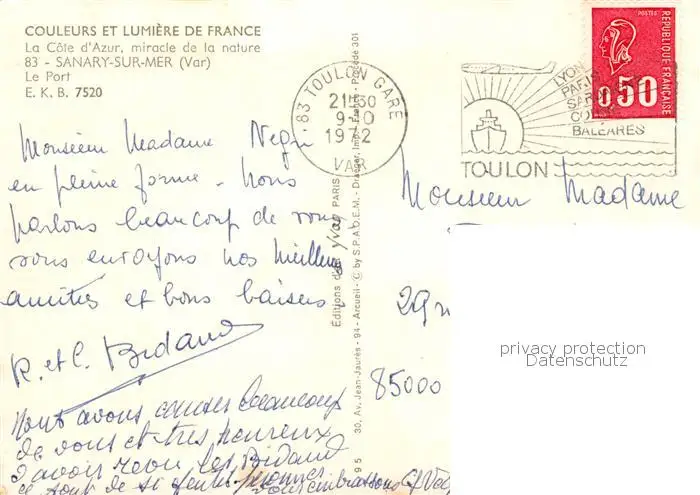 COULEURS ET LUMIÈRE DE FRANCE
La Côte d'Azur, miracle de la nature
83 - SANARY-SUR-MER (Var)
Le Port
E. K. B. 7520
83 TOULON GARE
21H30
9-10
1972
VAR
LYON
PARIS
BALEARES
TOULON
POSTES
RÉPUBLIQUE FRANÇAISE
0,50
Monsieur Madame Negri
en pleine forme. Nous
parlons beaucoup de vous
vous envoyons nos meilleures
amitiés et bons baisers
R. et C. Bidaud
Nous avons causer beaucoup
de vous et très heureux
d'avoir revu les Bidaud
ce sont de si gentils
vous embrassons
Editions d'art yvon PARIS
30, Av. Jean-Jaurès - 94 - Arcueil - © by S.P.A.D.E.M. - Draeger, Imp. France - Procédé 301
Monsieur Madame
29
85000
privacy protection
Datenschutz